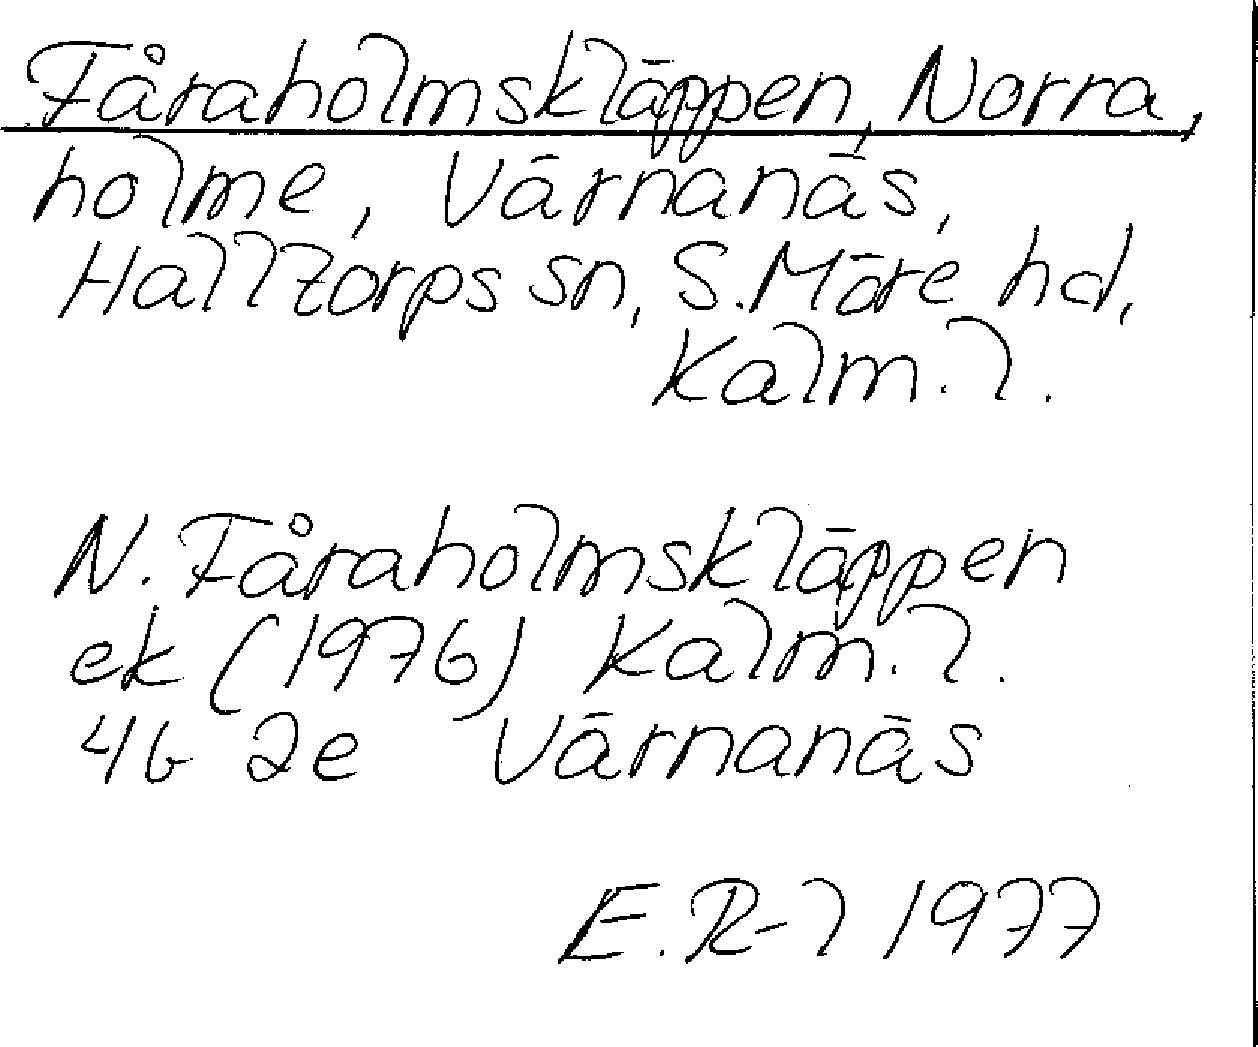 Fåraholmskläppen, Norra,
holme, Värnanäs,
Halltorps sn, S. Möre hd,
Kalm. l.
N. Fåraholmskläppen
ek (1976) Kalm. l.
4G 2e Värnanäs
E. R-l 1977